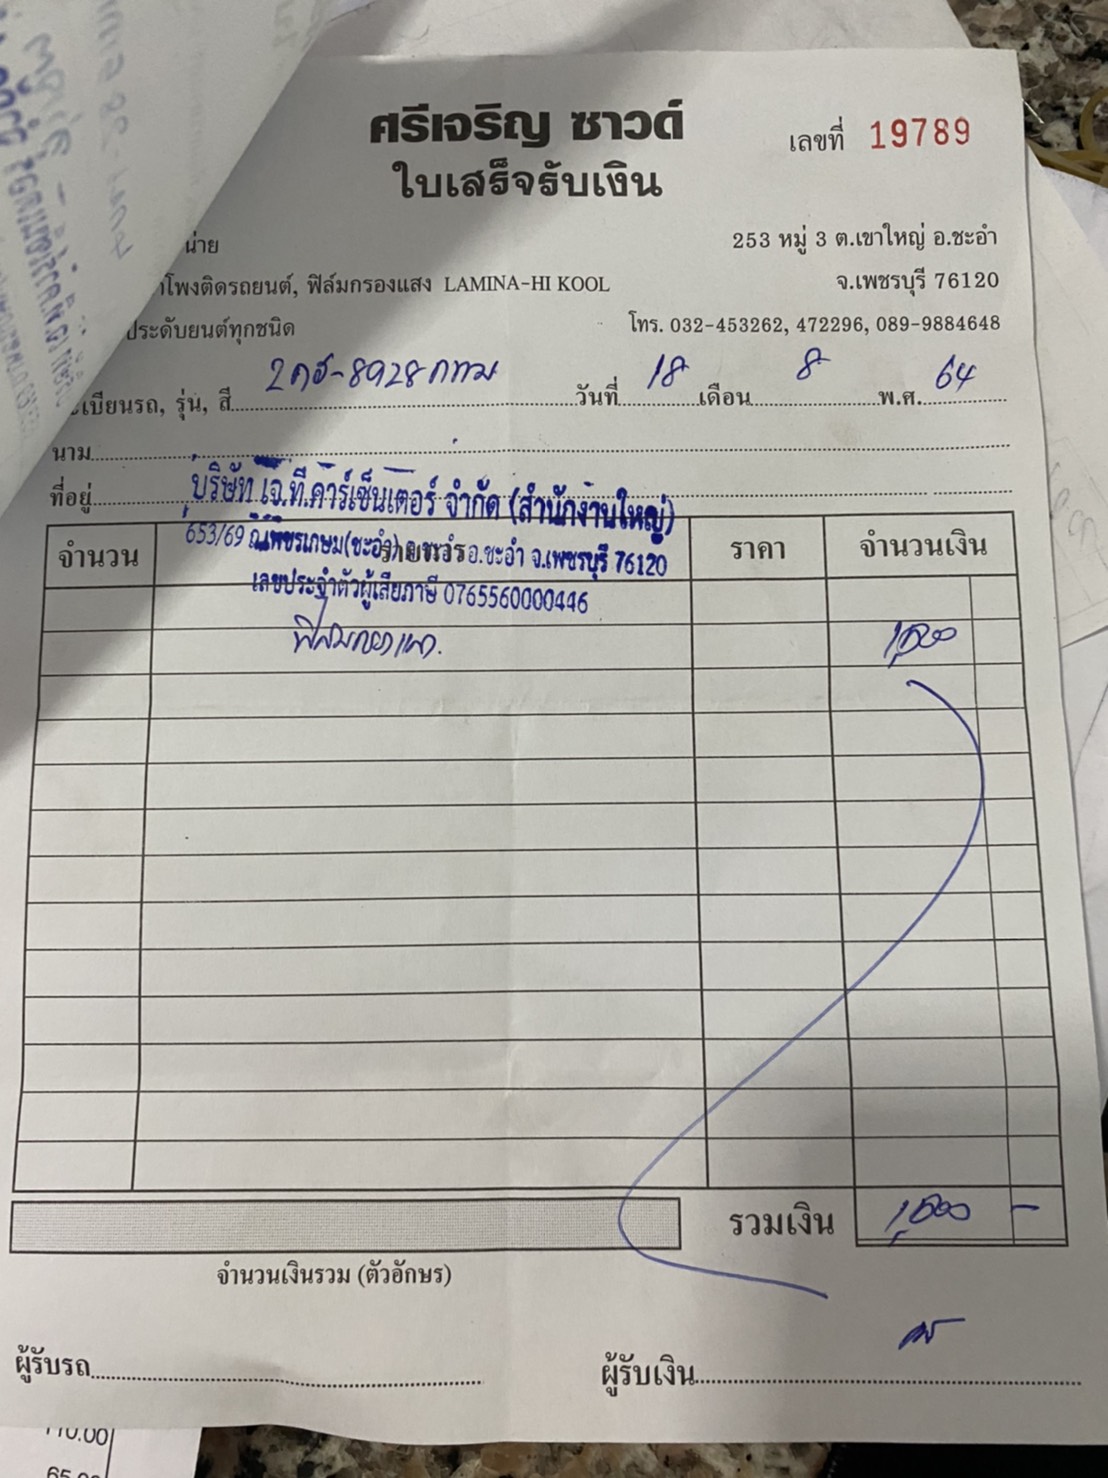 ศรีเจริญ ซาวด์
เลขที่ 19789
ใบเสร็จรับเงิน
น่าย
253 หมู่ 3 ต.เขาใหญ่ อ.ชะอำ
โพงติดรถยนต์, ฟิล์มกรองแสง LAMINA-HI KOOL
จ.เพชรบุรี 76120
ประดับยนต์ทุกชนิด
โทร. 032-453262, 472296, 089-9884648
เบียนรถ, รุ่น, สี 8928 กทม วันที่ 18 เดือน 8 พ.ศ. 64
นาม
ที่อยู่
บริษัท เจ.ที.คาร์เซ็นเตอร์ จำกัด (สำนักงานใหญ่)
653/69 ถ.เพชรเกษม(ชะอำ) อ.ชะอำ จ.เพชรบุรี 76120
เลขประจำตัวผู้เสียภาษี 0765560000446
จำนวน รายการ ราคา จำนวนเงิน
ฟิล์มกรองแสง
รวมเงิน
จำนวนเงินรวม (ตัวอักษร)
ผู้รับรถ
ผู้รับเงิน
110.00